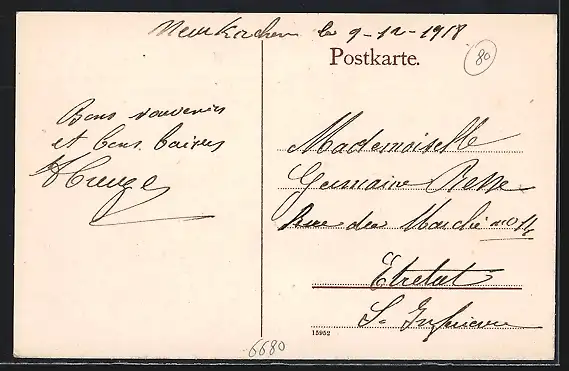 Neunkirchen le 9-12-1918
Postkarte.
80
Bons souvenirs
et bons baisers
Mademoiselle
Germaine
Rue du Marché no 14
Etretat
S. Inférieure
15952
6680